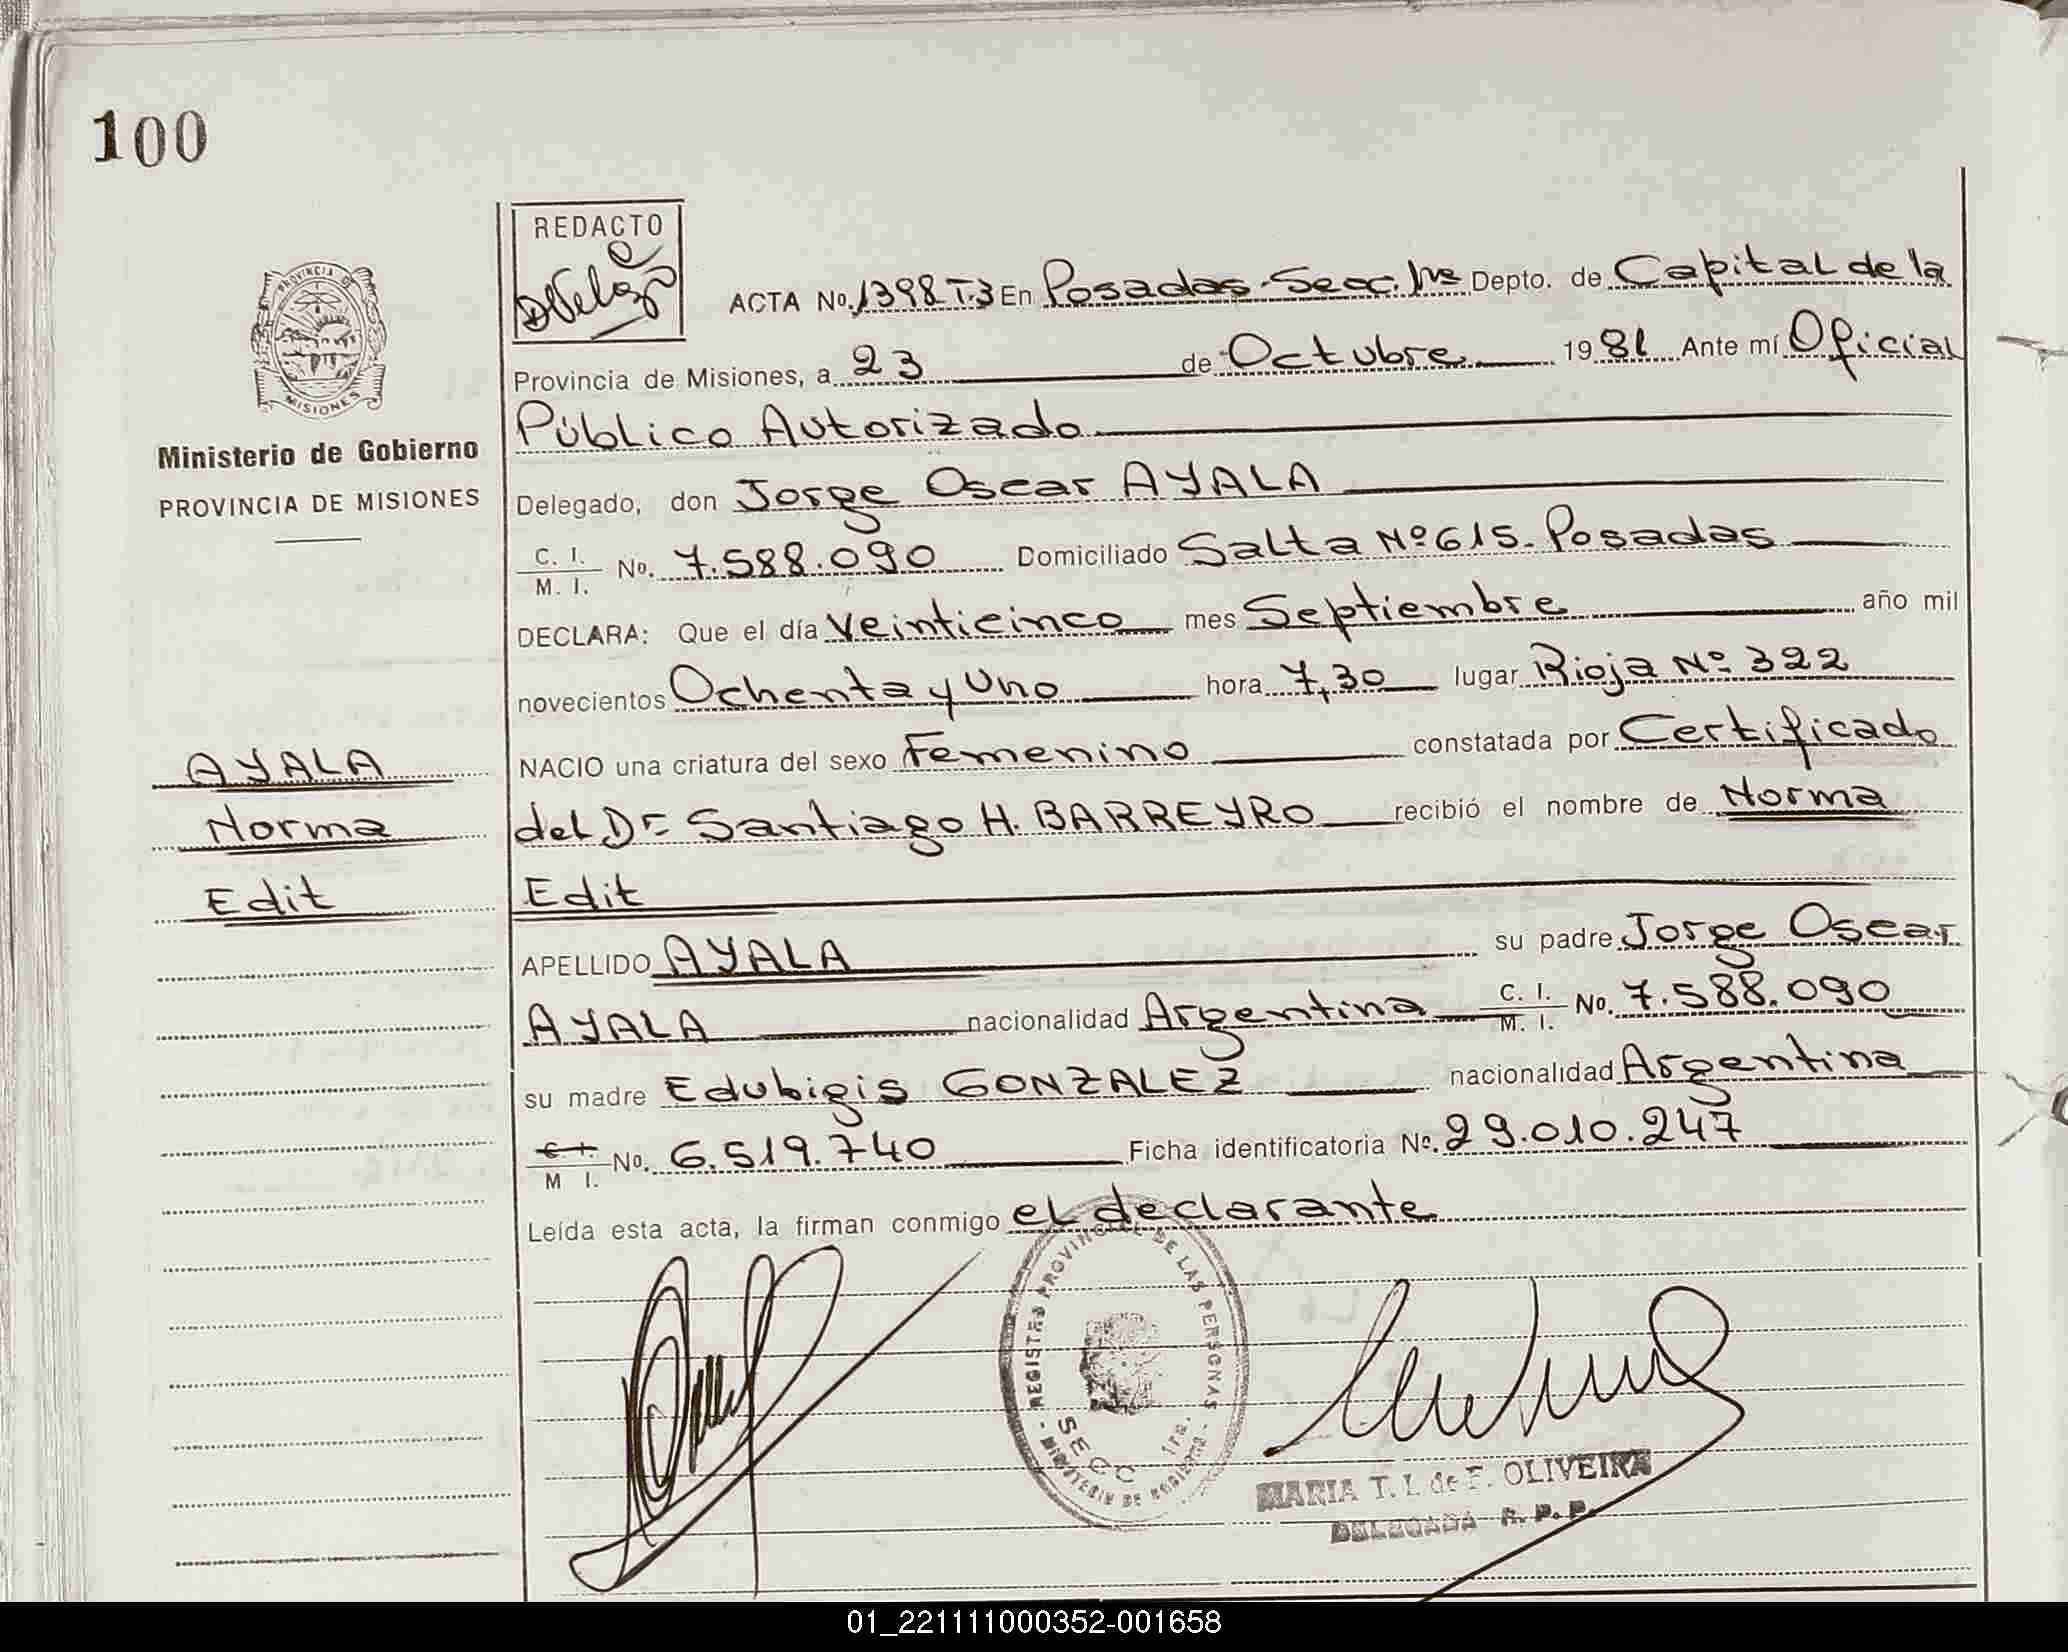 100
REDACTO
PROVINCIA DE
MISIONES
Ministerio de Gobierno
PROVINCIA DE MISIONES
ACTA No. 1398 T.3 En Posadas-Secc. 1ra Depto. de Capital de la
Provincia de Misiones, a 23 de Octubre 1981 Ante mí Oficial
Público Autorizado
Delegado, don Jorge Oscar AYALA
C. I.
M. I. No. 7.588.090 Domiciliado Salta Nº 615. Posadas
DECLARA: Que el día Veinticinco mes Septiembre año mil
novecientos Ochenta y Uno hora 7,30 lugar Rioja Nº 322
NACIO una criatura del sexo Femenino constatada por Certificado
del Dr. Santiago H. BARREYRO recibió el nombre de Norma
Edit
APELLIDO AYALA su padre Jorge Oscar
AYALA nacionalidad Argentina C. I. M. I. No. 7.588.090
su madre Edubigis GONZALEZ nacionalidad Argentina
C. I.
M I. No. 6.519.740 Ficha identificatoria No. 29.010.247
Leída esta acta, la firman conmigo el declarante
AYALA
Norma
Edit
REGISTRO PROVINCIAL DE LAS PERSONAS
SECC 1ra.
MINISTERIO DE GOBIERNO
MARIA T. I. de F. OLIVEIRA
DELEGADA R. P. P.
01_221111000352-001658